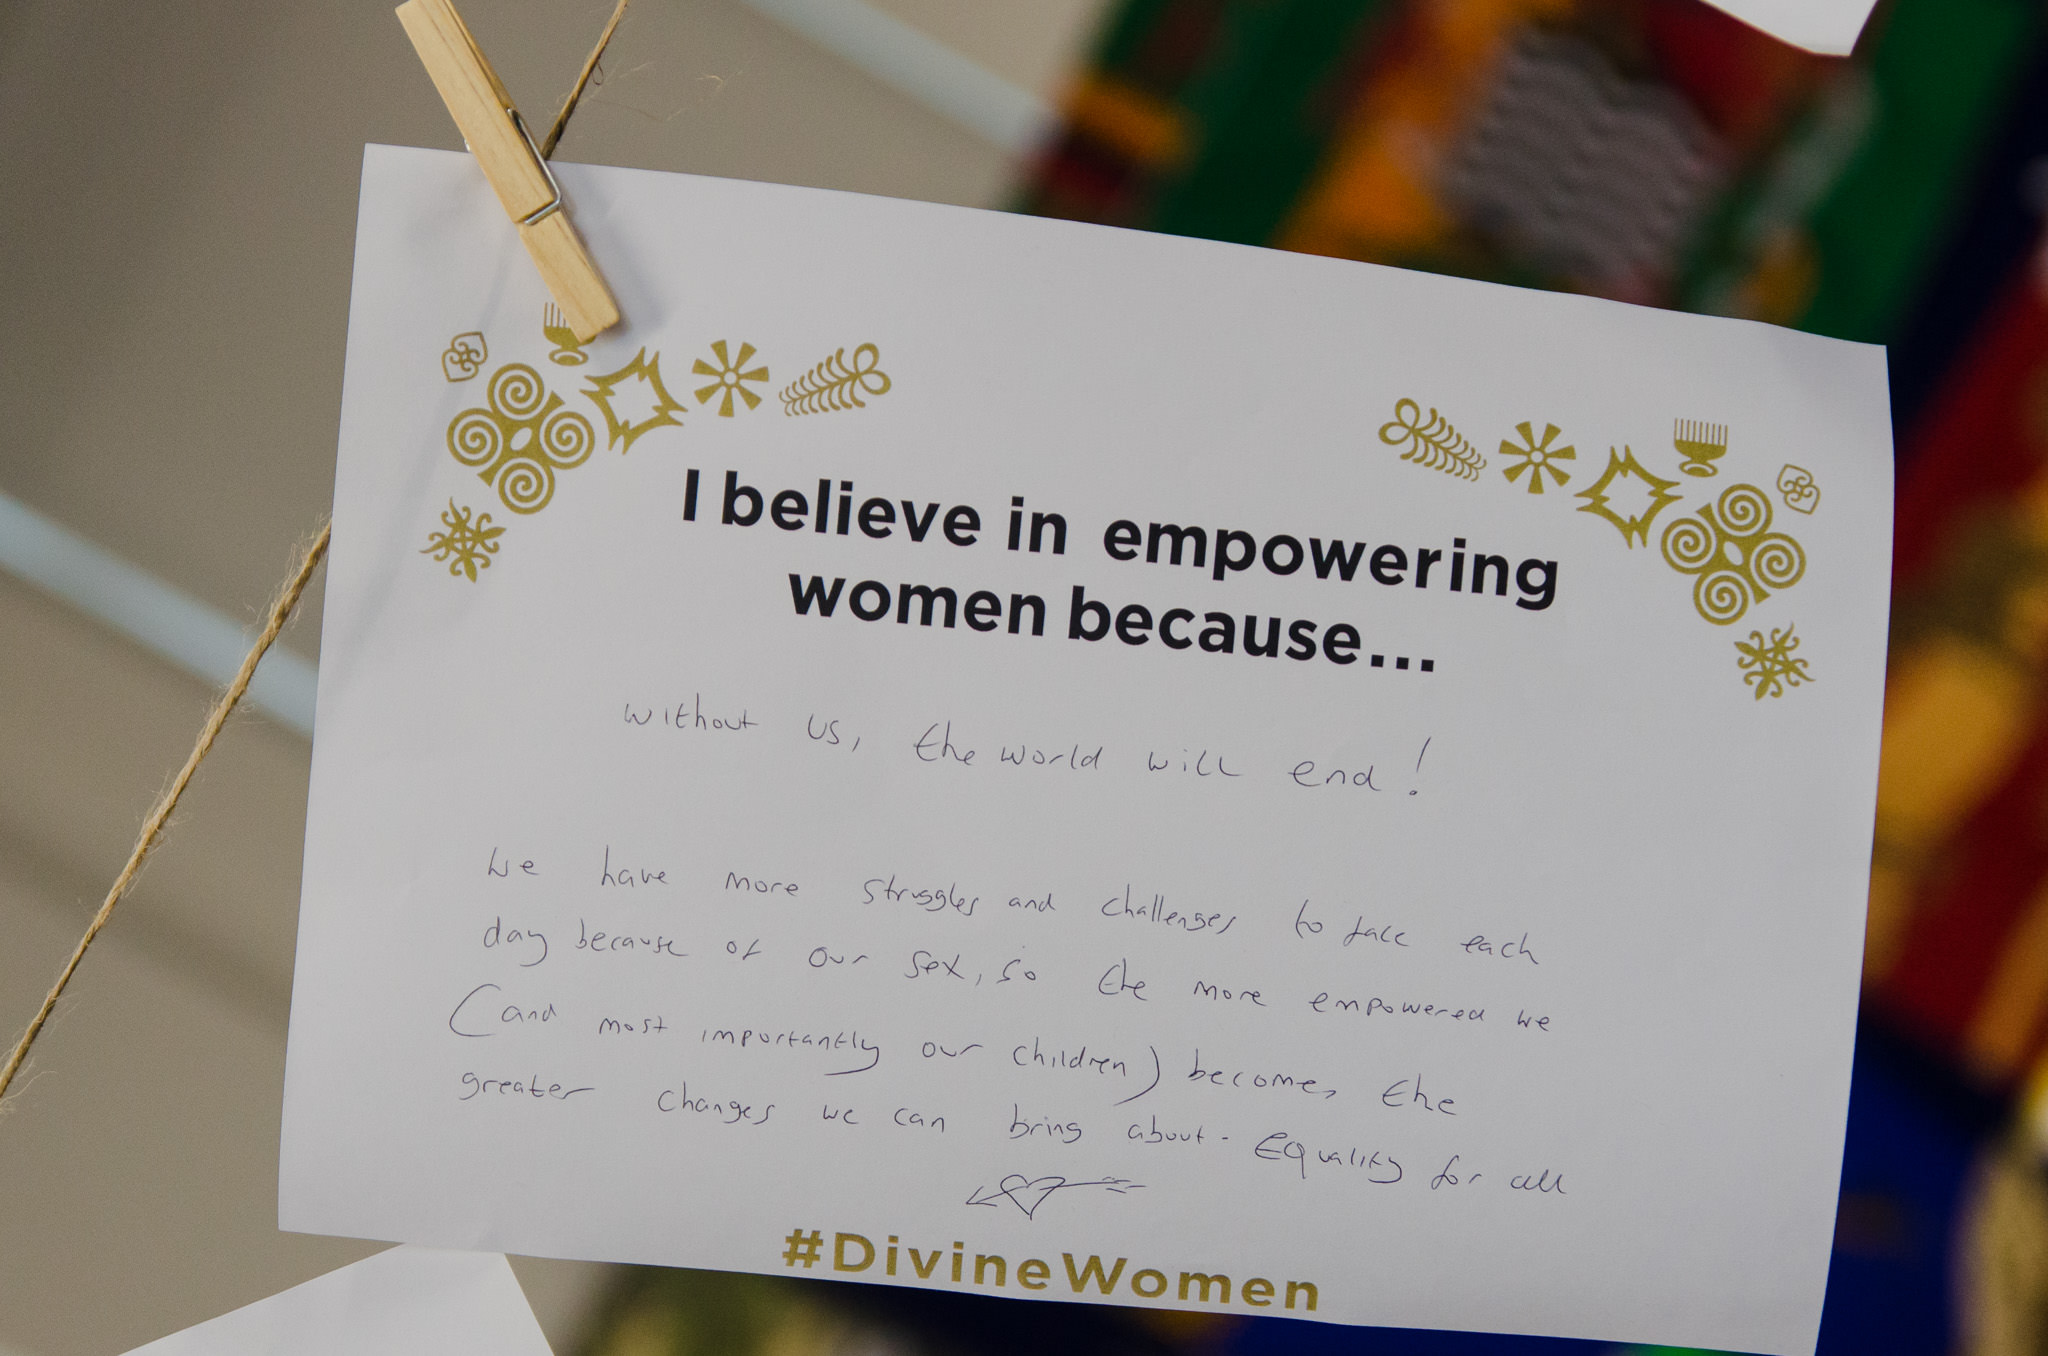 I believe in empowering
women because...
without us, the world will end!
We have more struggles and challenges to face each
day because of our sex, so the more empowered we
(and most importantly our children) become, the
greater changes we can bring about. Equality for all
#DivineWomen